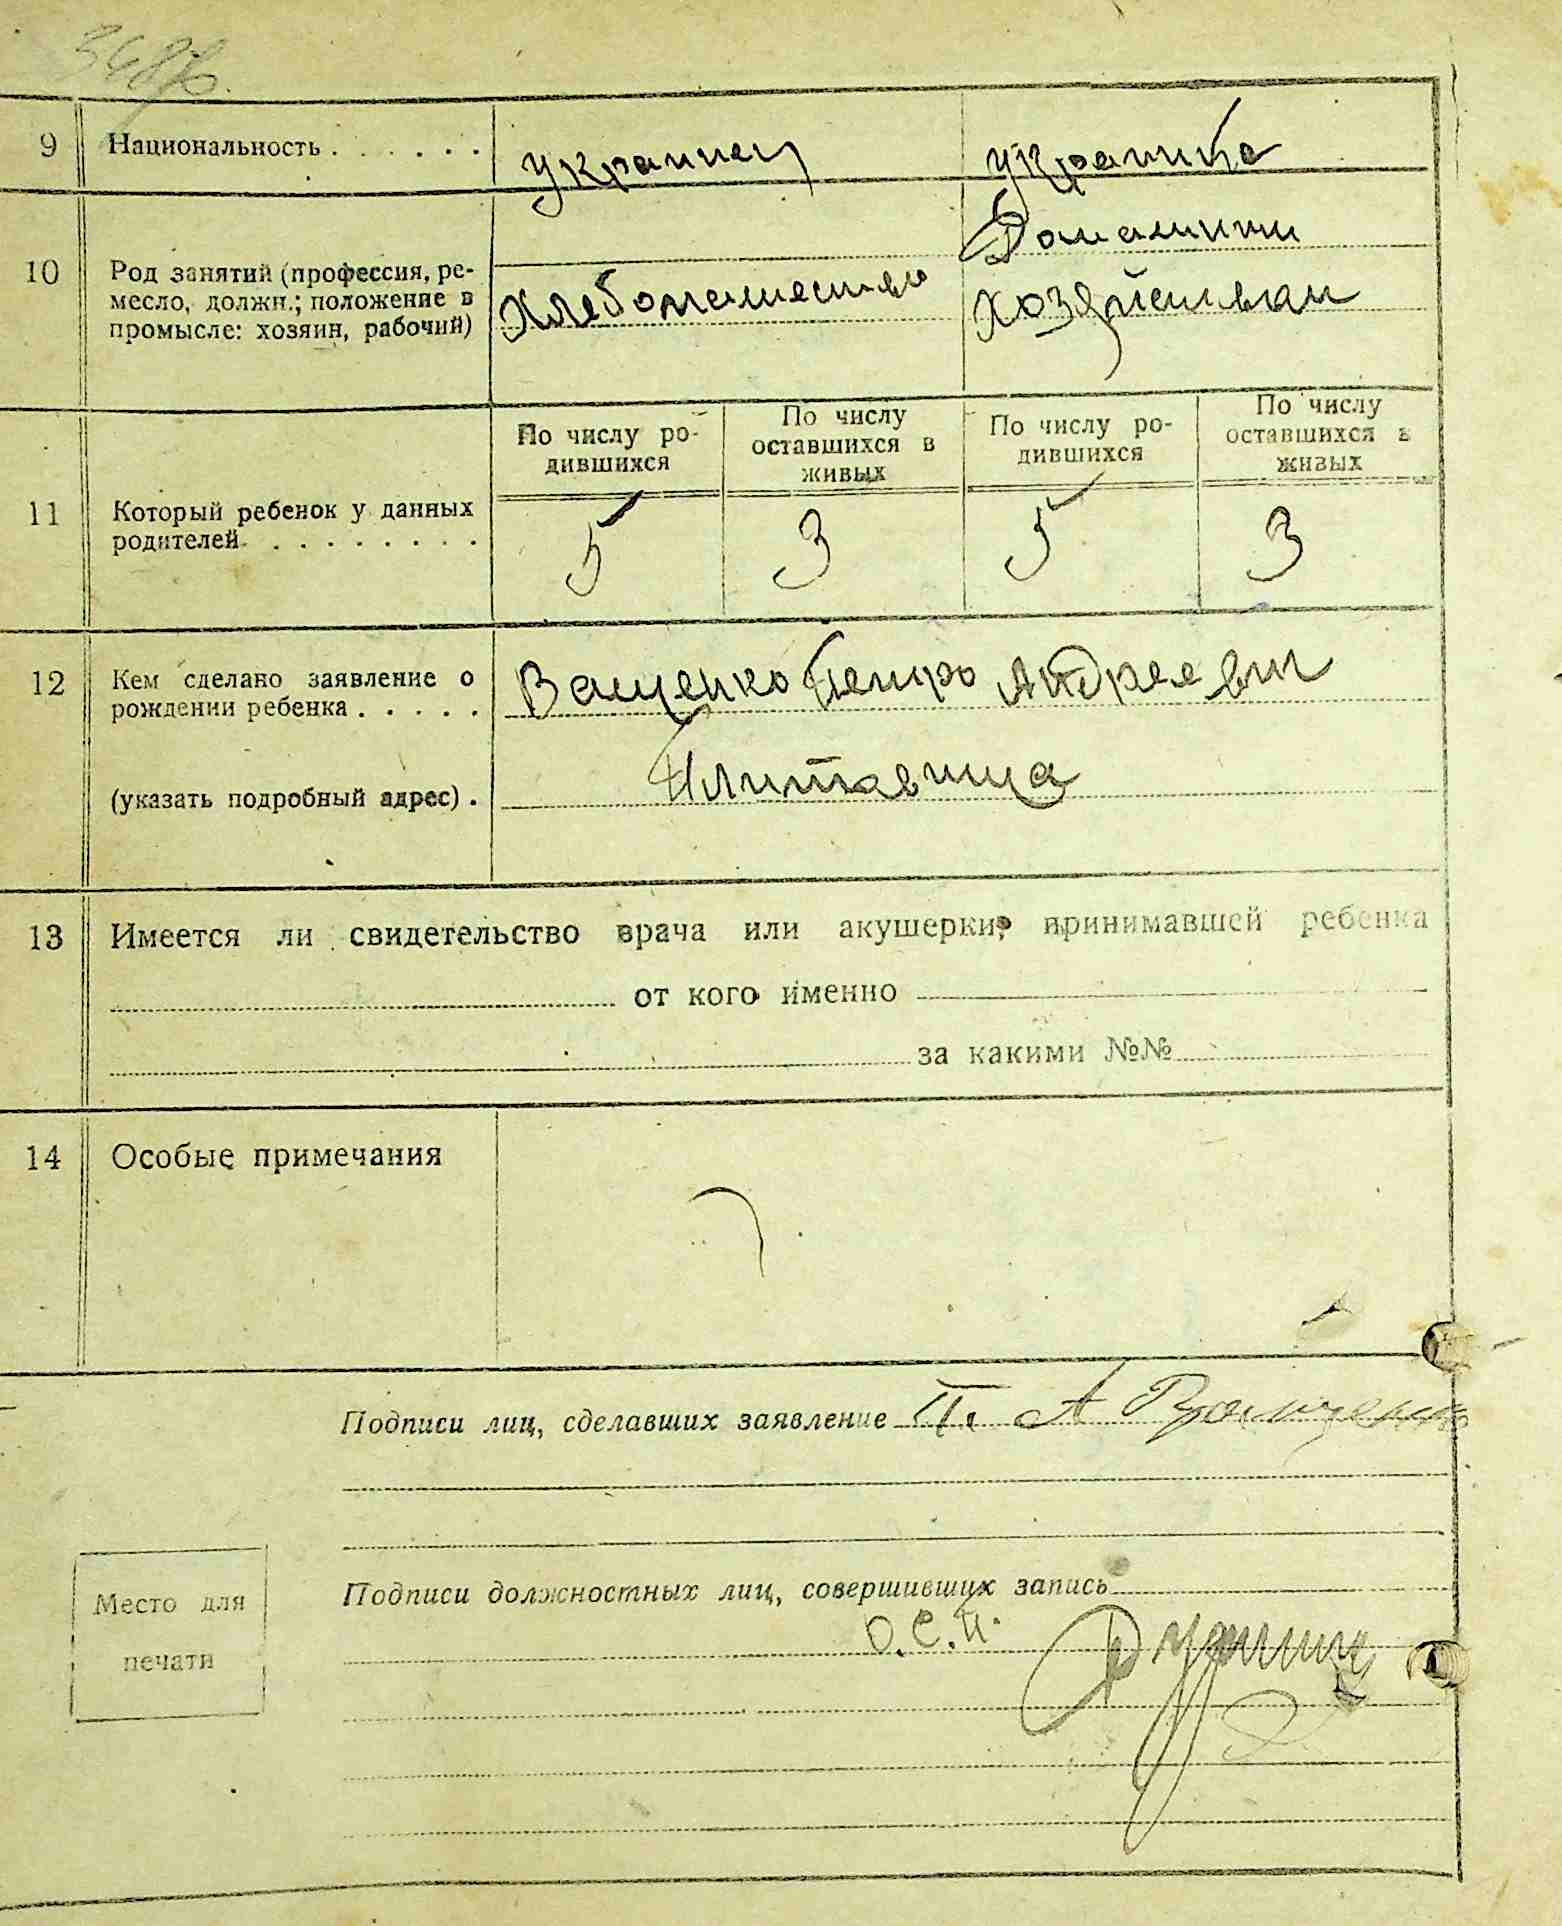 9 Национальность . . . . . . Украинец Украинка
Домашним
10 Род занятий (профессия, ре-
месло, должн.; положение в Хлебопашество хозяйством
промысле: хозяин, рабочий)
По числу ро-
дившихся По числу
оставшихся в
живых По числу ро-
дившихся По числу
оставшихся в
живых
11 Который ребенок у данных
родителей. . . . . . . . . 5 3 5 3
12 Кем сделано заявление о Ващенко Петро Андреевич
рождении ребенка . . . . .
(указать подробный адрес) .
13 Имеется ли свидетельство врача или акушерки, принимавшей ребенка
от кого именно
за какими №№
14 Особые примечания
Подписи лиц, сделавших заявление П. А Ващенко
Подписи должностных лиц, совершивших запись
Место для
печати